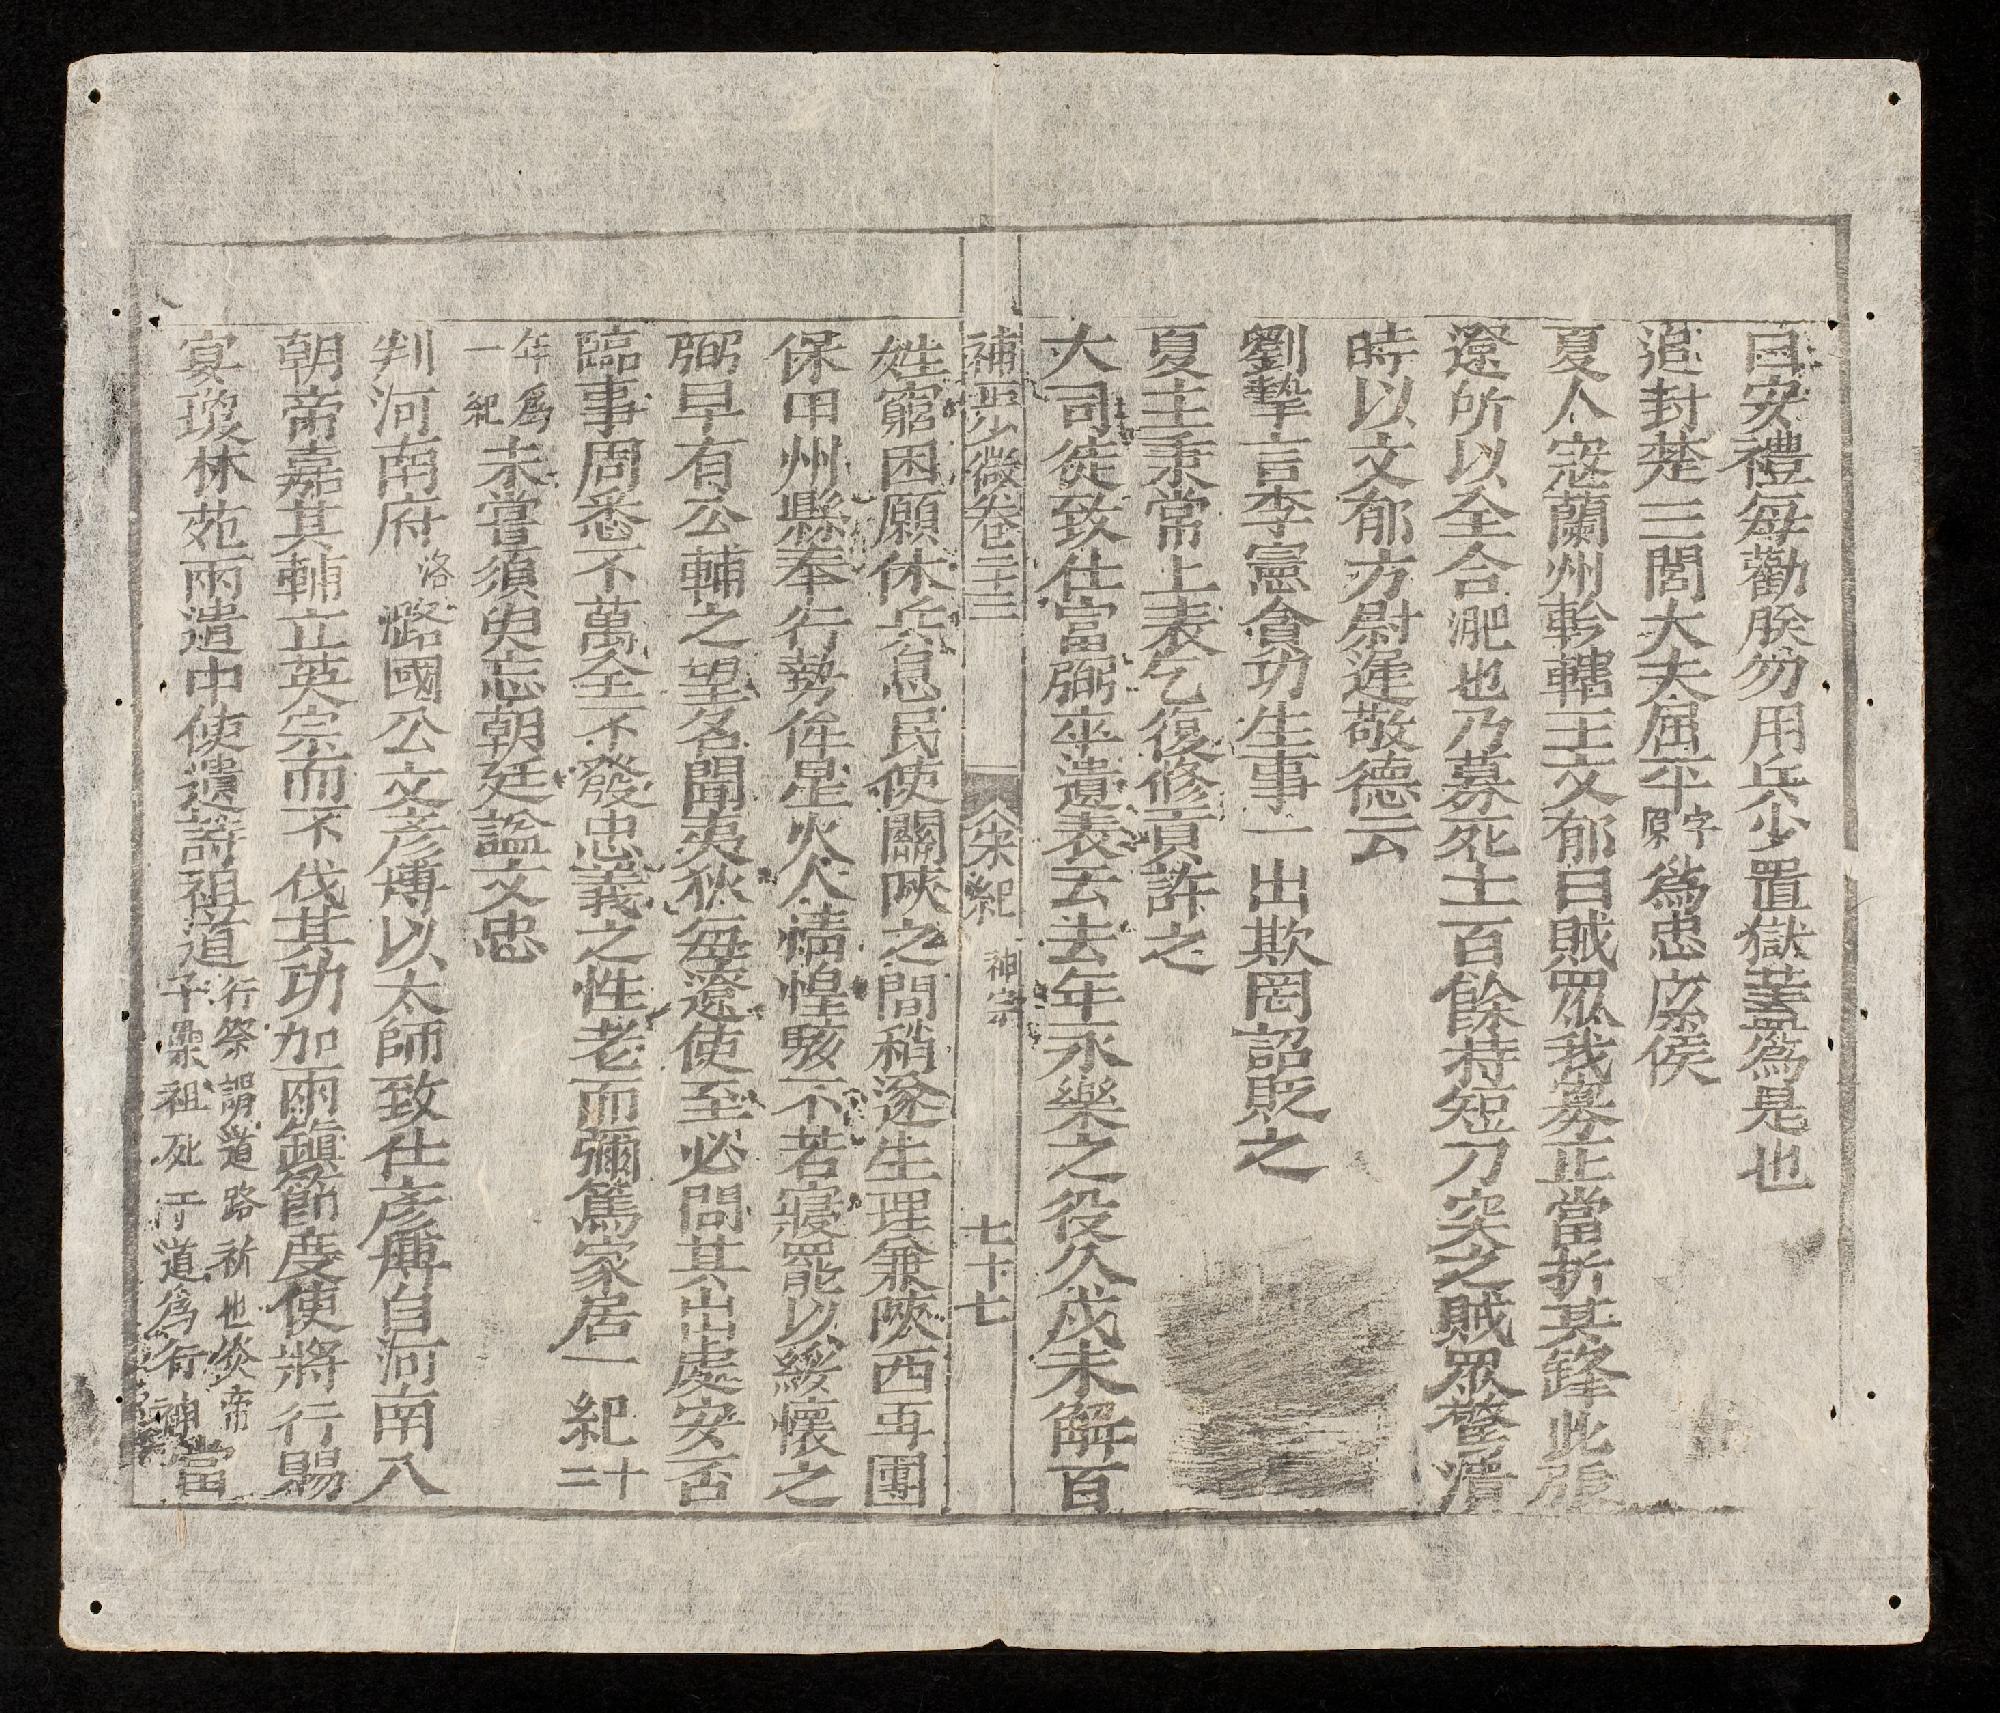 曰安禮每勸朕勿用兵少置獄蓋爲是也
追封楚三閭大夫屈平字原爲忠㓗侯
夏人寇蘭州幹轄王文郁曰賊眾我寡正當折其鋒此張
遼所以全合淝也乃募死士百餘持短刀突之賊眾驚潰
時以文郁方尉遲敬德云
劉摯言李憲貪功生事一出欺罔詔貶之
夏主秉常上表乞復修貢許之
大司徒致仕富弼卒遺表云去年永樂之役久戍未解百
補正少微卷二十三 宋紀 神宗 七十七
姓窮困願休兵息民使關陝之間稍遂生理兼陝西再團
保甲州縣奉行勢侔星火人情惶駭不若寢罷以綏懷之
弼早有公輔之望名聞夷狄每遼使至必問其出處安否
臨事周悉不萬全不發忠義之性老而彌篤家居一紀十二
年爲一紀未嘗須臾忘朝廷諡文忠
判河南府洛潞國公文彥博以太師致仕彥博自河南入
朝帝嘉其輔立英宗而不伐其功加兩鎭節度使將行賜
宴瓊林苑兩遣中使遺詩祖道行祭謂道路祈也炎帝子纍祖死于道爲行神當